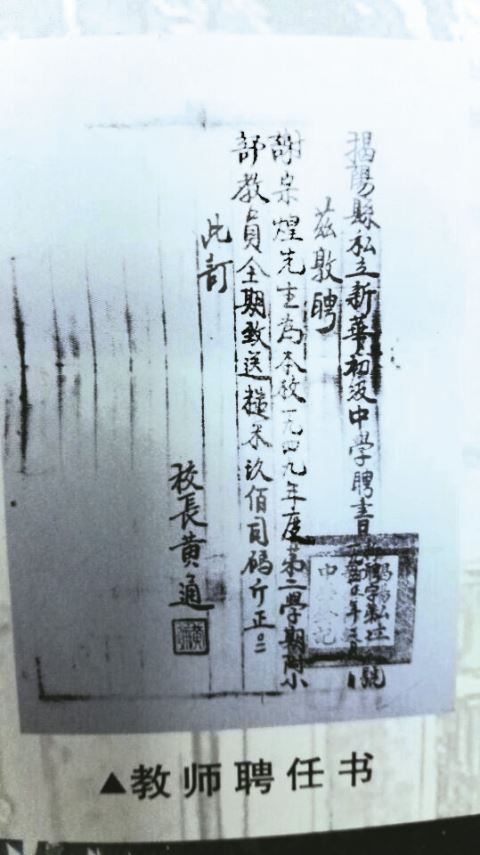 揭陽縣私立新華初級中學聘書
茲敦聘
謝宗煌先生為本校一九四九年度第二學期附小
部教員全期致送糙米玖佰司碼斤正
此訂
校長黃通
▲教师聘任书